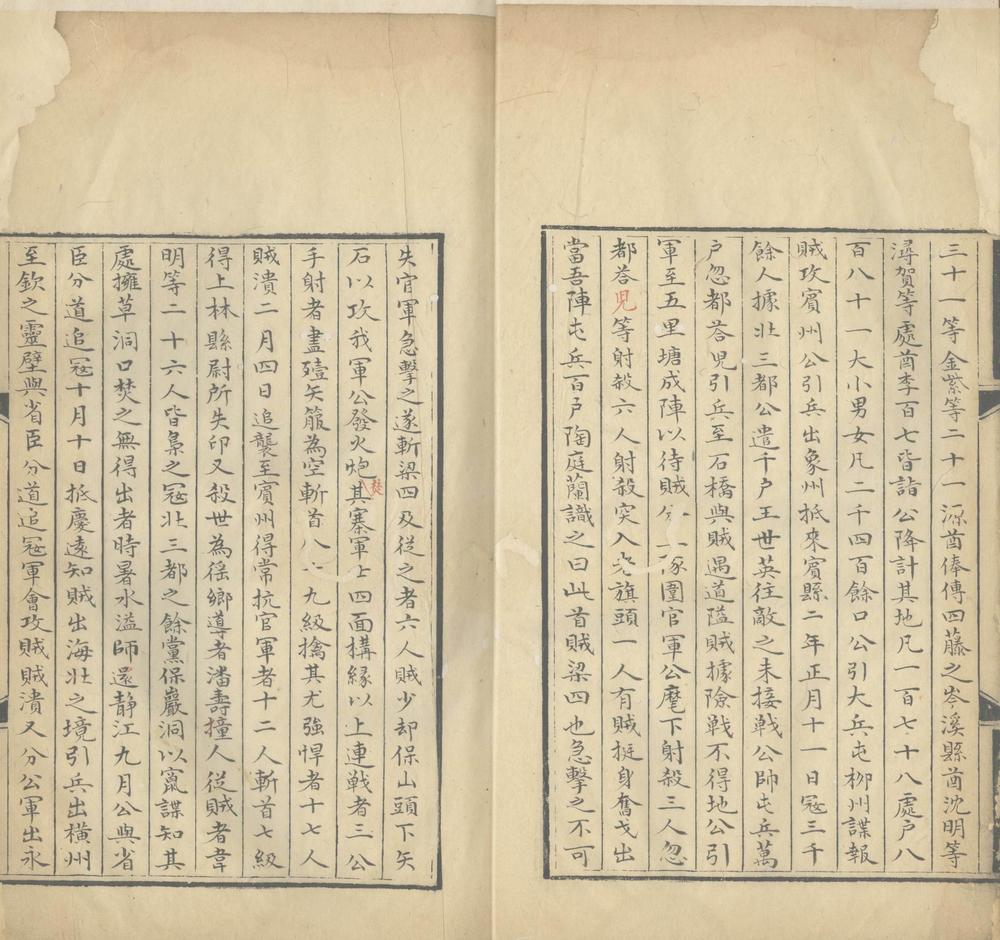 三十一等金紫等二十一源酋俸傳四藤之岑溪縣酋沈明等
潯賀等處酋李百七皆詣公降計其地凡一百七十八處戶八
百八十一大小男女凡二千四百餘口公引大兵屯柳州諜報
賊攻賓州公引兵出象州抵來賓縣二年正月十一日冦三千
餘人據壯三都公遣千戶王世英往敵之未接戰公師屯兵萬
戶忽都荅児引兵至石橋與賊遇道隘賊據險戰不得地公引
軍至五里塘成陣以待賊分豕圍官軍公麾下射殺三人忽
都荅児等射殺六人射殺突入旗頭一人有賊挺身奮戈出
當吾陣屯兵百戶陶庭蘭識之曰此首賊梁四也急擊之不可
失官軍急擊之遂斬梁四及從之者六人賊少却保山頭下矢
石以攻我軍公發火炮焚其寨軍士四面構緣以上連戰者三公
手射者盡殪矢箙為空斬首八九級擒其尤強悍者十七人
賊潰二月四日追襲至賓州得常抗官軍者十二人斬首七級
得上林縣尉所失印又殺世為徭鄉導者潘壽撞人從賊者韋
明等二十六人皆梟之冦壯三都之餘黨保巖洞以竄諜知其
處擁草洞口焚之無得出者時暑水溢師還静江九月公與省
臣分道追冦十月十日抵慶遠知賊出海壯之境引兵出橫州
至欽之靈壁與省臣分道追冦軍會攻賊賊潰又分公軍出永